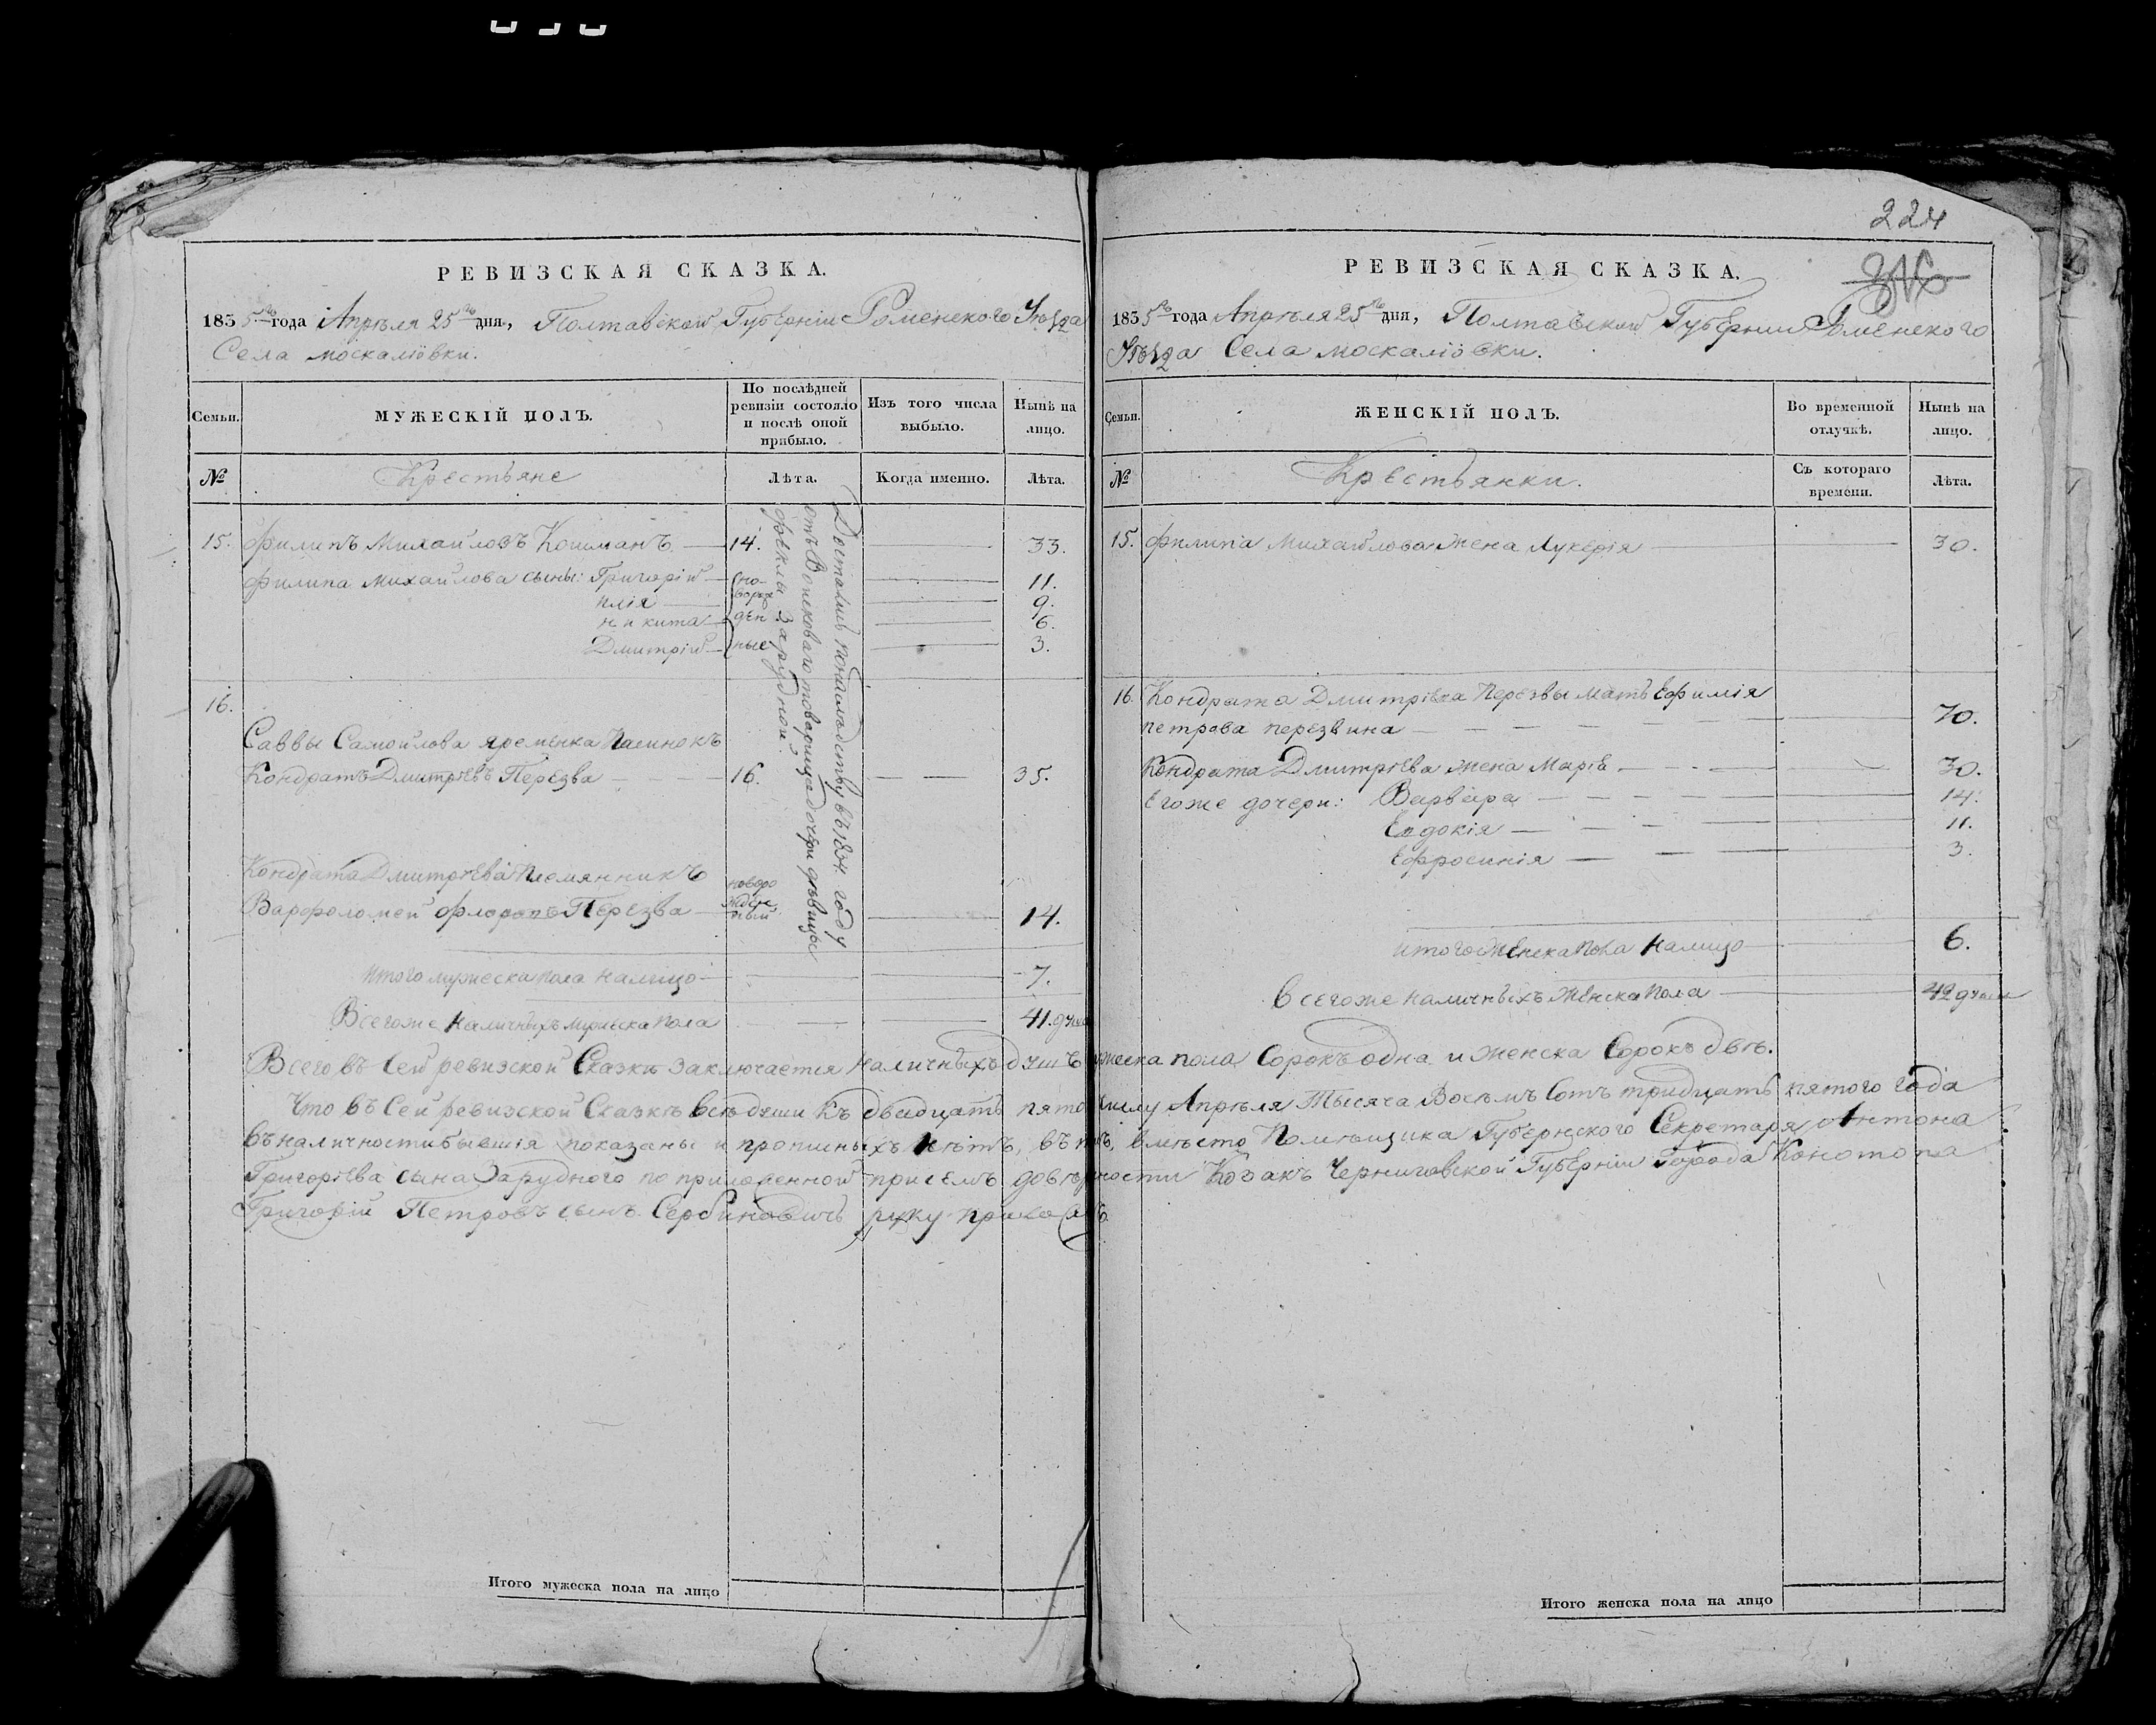 РЕВИЗСКАЯ СКАЗКА.
1835го года Апрѣля 25го дня, Полтавской Губерніи Роменского Уѣзда
Села москаліовки.
Семьи.
МУЖЕСКІЙ ПОЛЪ.
По послѣдней ревизіи состояло и послѣ оной прибыло.
Изъ того числа выбыло.
Нынѣ на лицо.
№
Крестьяне
Лѣта.
Когда именно.
Лѣта.
15. Филипъ Михайловъ Кошманъ 14. 33.
Филипа Михайлова сыны: Григорій но- 11.
илія ворож 9.
никита ден 6.
Дмитрій ные 3.
16.
Саввы Самойлова яременка Пасинокъ
Кондратъ Дмитріевъ Перезва 16. 35.
Кондрата Дмитріева Племянникъ
Варфоломей Флоровъ Перезва новоро жден ный 14.
Достались понаслѣдству въ 1834. году
отъ Вонсковаго товарища дочери дѣвицы
Феклы Зарудной.
итого мужеска пола налицо 7.
Всего же наличныхъ мужеска пола 41. душ
РЕВИЗСКАЯ СКАЗКА.
224
1835го года Апрѣля 25го дня, Полтавской Губерніи Роменского
Уѣзда Села москаліовки.
Семьи.
ЖЕНСКІЙ ПОЛЪ.
Во временной отлучкѣ.
Нынѣ на лицо.
№
Крестьянки.
Съ котораго времени.
Лѣта.
15. Филипа Михайлова жена Лукерія 30.
16. Кондрата Дмитріева Перезвы мать Ефимія
петрова перезвина 70.
Кондрата Дмитріева жена Марія 30.
Его же дочери: Варвара 14.
Евдокія 11.
Ефросинія 3.
итого женска пола налицо 6.
Всего же наличныхъ женска пола 42 души
Всего въ сей ревизской Сказки заключается наличныхъ душъ мужеска пола Сорокъ одна и женска Сорокъ двѣ.
Что въ Сей ревизской Сказкѣ всѣ души къ двадцать пято числу Апрѣля Тысяча Восемъ Сотъ тридцать пятого года
въ наличности бывшія показаны и прописныхъ нѣтъ, въ томъ, вмѣсто Помѣщика Губернского Секретаря Антона
Григоріева сына Зарудного по приложенной при семъ довѣренности Козакъ Черниговской Губерніи Города Конотопа
Григорій Петровъ сынъ Сербиновичъ руку приложилъ
Итого мужеска пола на лицо
Итого женска пола на лицо